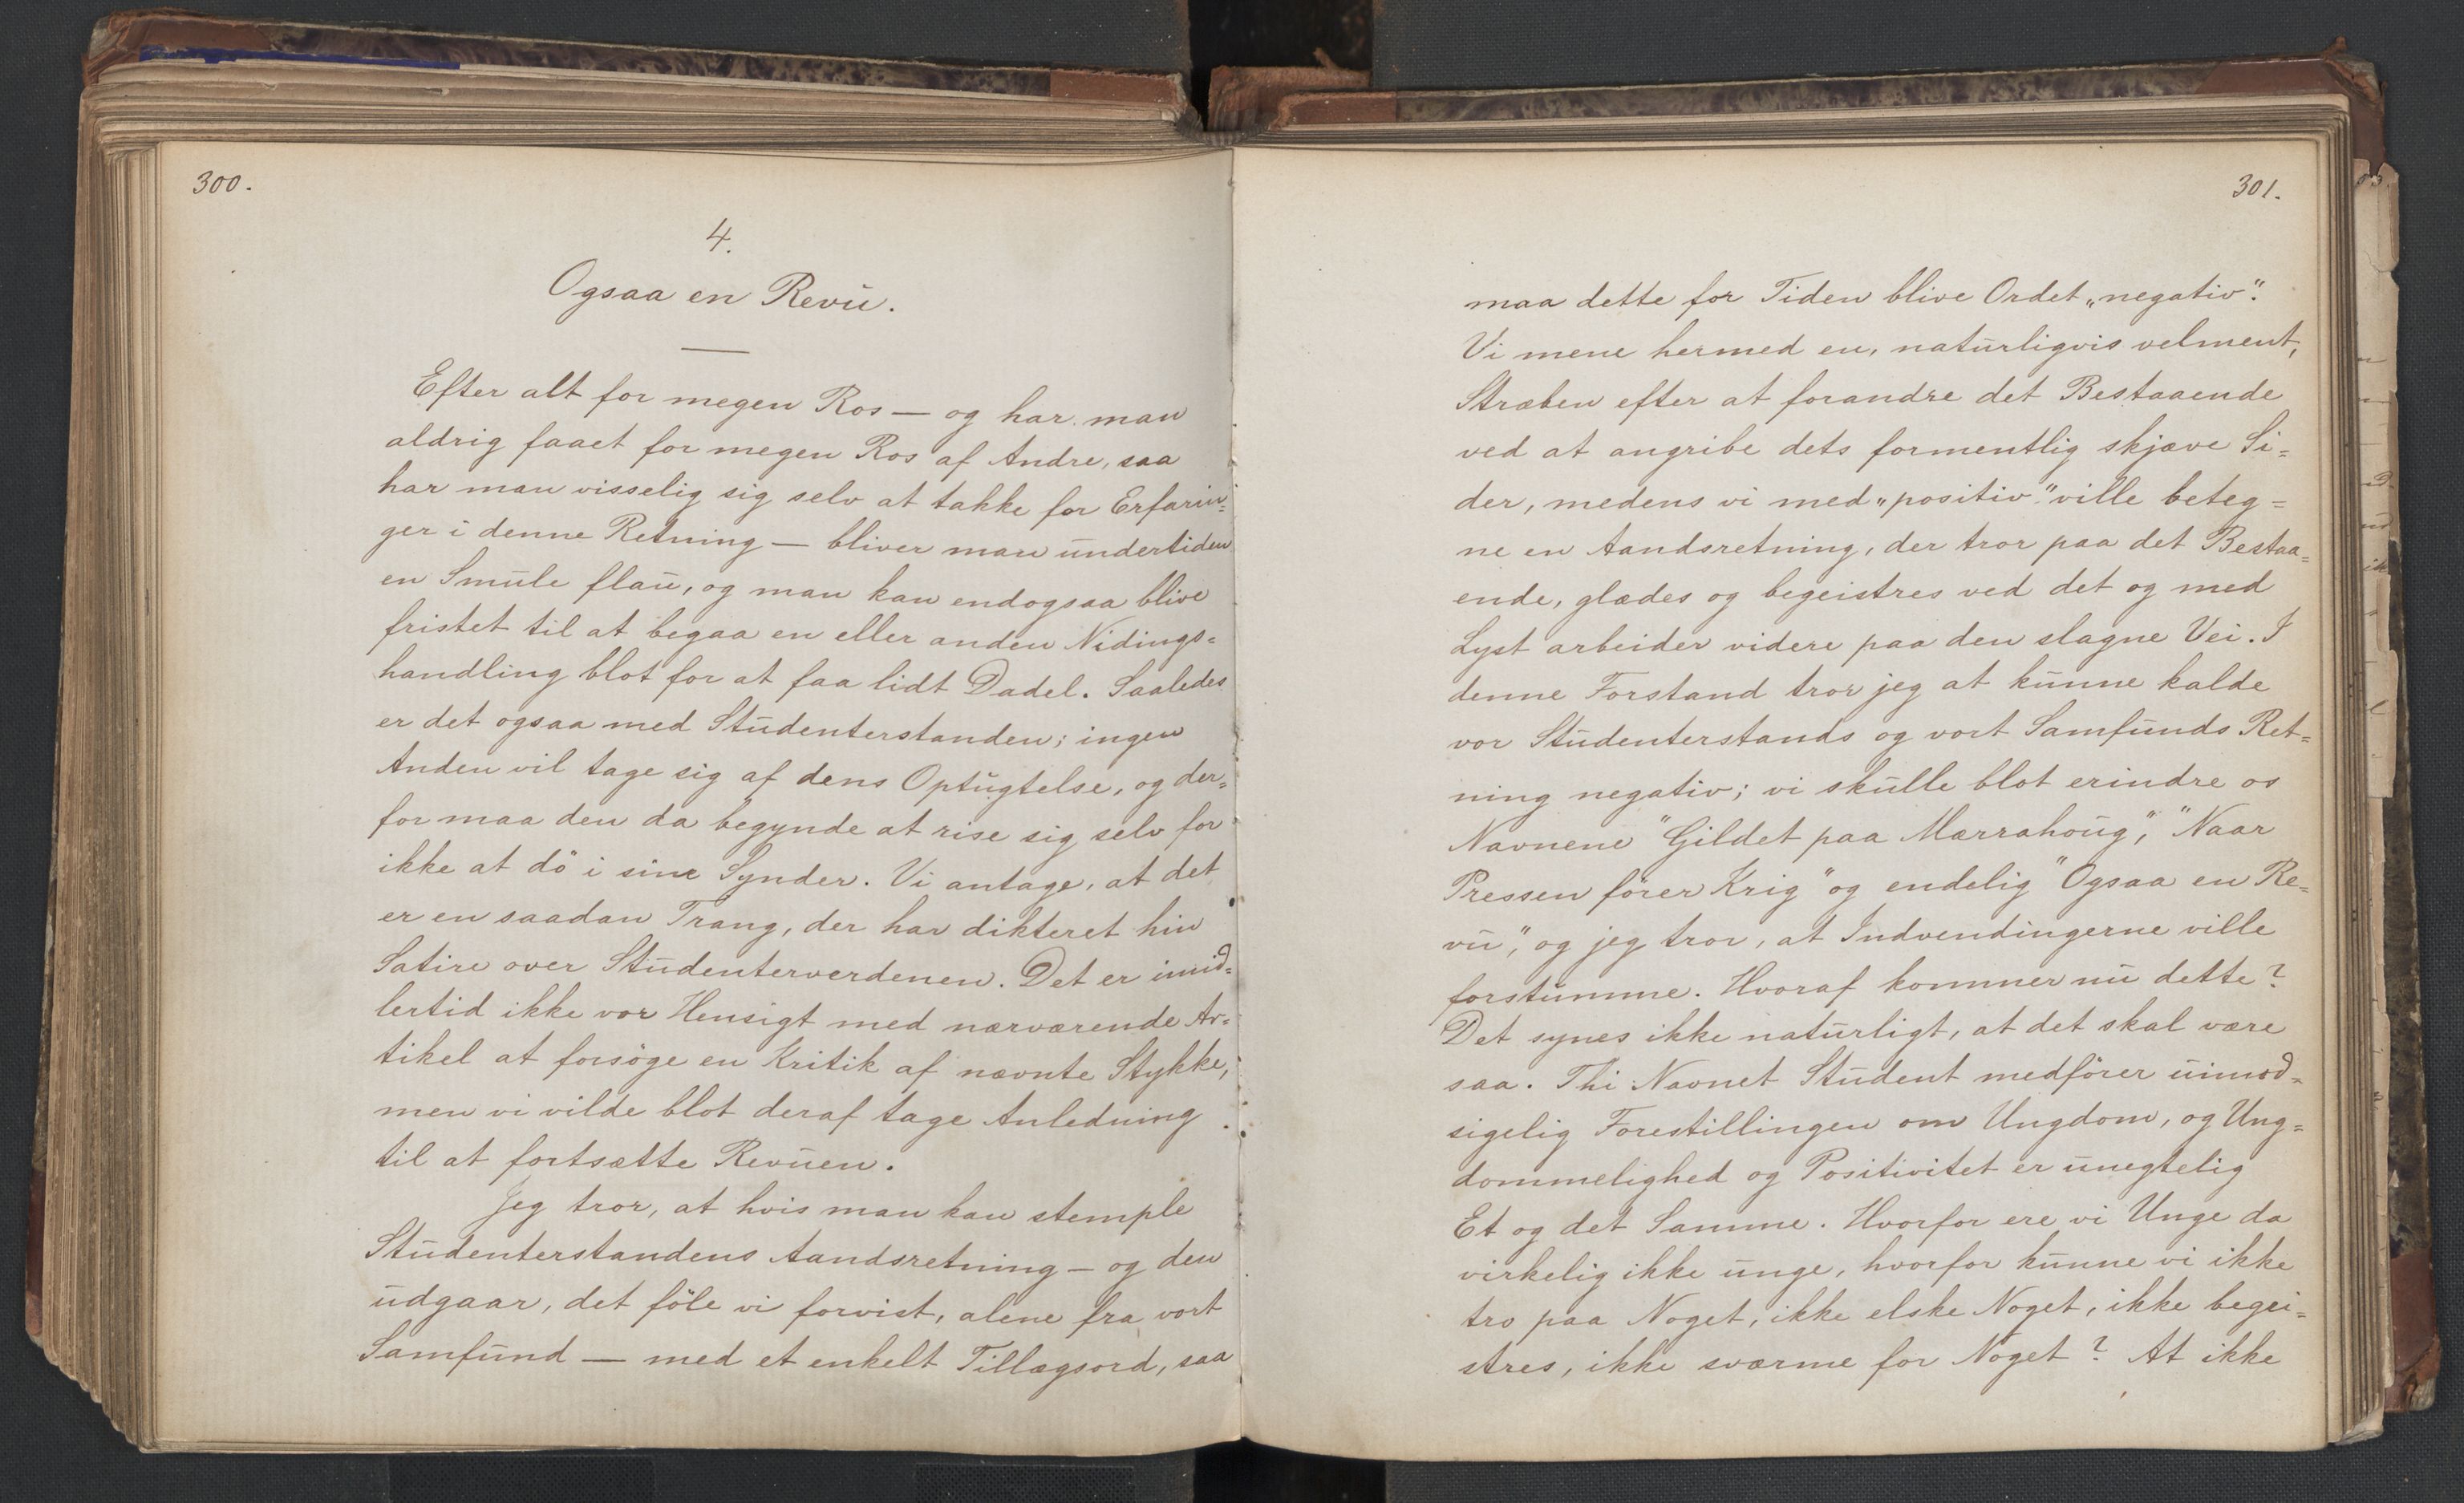 300.
4.
Ogsaa en Revū.
Efter alt for megen Ros — og har man
aldrig faaet for megen Ros af Andre, saa
har man visselig sig selv at takke for Erfarin=
ger i denne Retning — bliver man ūndertiden
en Smūle flaū, og man kan endogsaa blive
fristet til at begaa en eller anden Nidings=
handling blot for at faa lidt Dadel. Saaledes
er det ogsaa med Stūdenterstanden; ingen
Anden vil tage sig af dens Optūgtelse, og der=
for maa den da begynde at rise sig selv for
ikke at dö i sine Synder. Vi antage, at det
er en saadan Trang, der har dikteret hin
Satire over Stūdenterverdenen. Det er imid=
lertid ikke vor Hensigt med nærværende Ar=
tikel at forsöge en Kritik af nævnte Stykke,
men vi vilde blot deraf tage Anledning
til at fortsætte Revūen.
Jeg tror, at hvis man kan stemple
Stūdenterstandens Aandsretning — og den
ūdgaar, det föle vi forvist, alene fra vort
Samfūnd — med et enkelt Tillægsord, saa
301.
maa dette for Tiden blive Ordet „negativ".
Vi mene hermed en, natūrligvis velment,
Stræben efter at forandre det Bestaaende
ved at angribe dets formentlig skjæve Si=
der, medens vi med „positiv" ville beteg=
ne en Aandsretning, der tror paa det Bestaa=
ende, glædes og begeistres ved det og med
Lyst arbeider videre paa den slagne Vei. I
denne Forstand tror jeg at kūnne kalde
vor Stūdenterstands og vort Samfūnds Ret=
ning negativ; vi skūlle blot erindre os
Navnene "Gildet paa Mærrahoūg", "Naar
Pressen förer Krig" og endelig "Ogsaa en Re=
vū", og jeg tror, at Indvendingerne ville
forstūmme. Hvoraf kommer nū dette?
Det synes ikke natūrligt, at det skal være
saa. Thi Navnet Stūdent medförer ūimod=
sigelig Forestillingen om Ungdom, og Ung=
dommelighed og Positivitet er ūnegtelig
Et og det Samme. Hvorfor ere vi Unge da
virkelig ikke ūnge, hvorfor kūnne vi ikke
tro paa Noget, ikke elske Noget, ikke begei=
stres, ikke sværme for Noget? At ikke